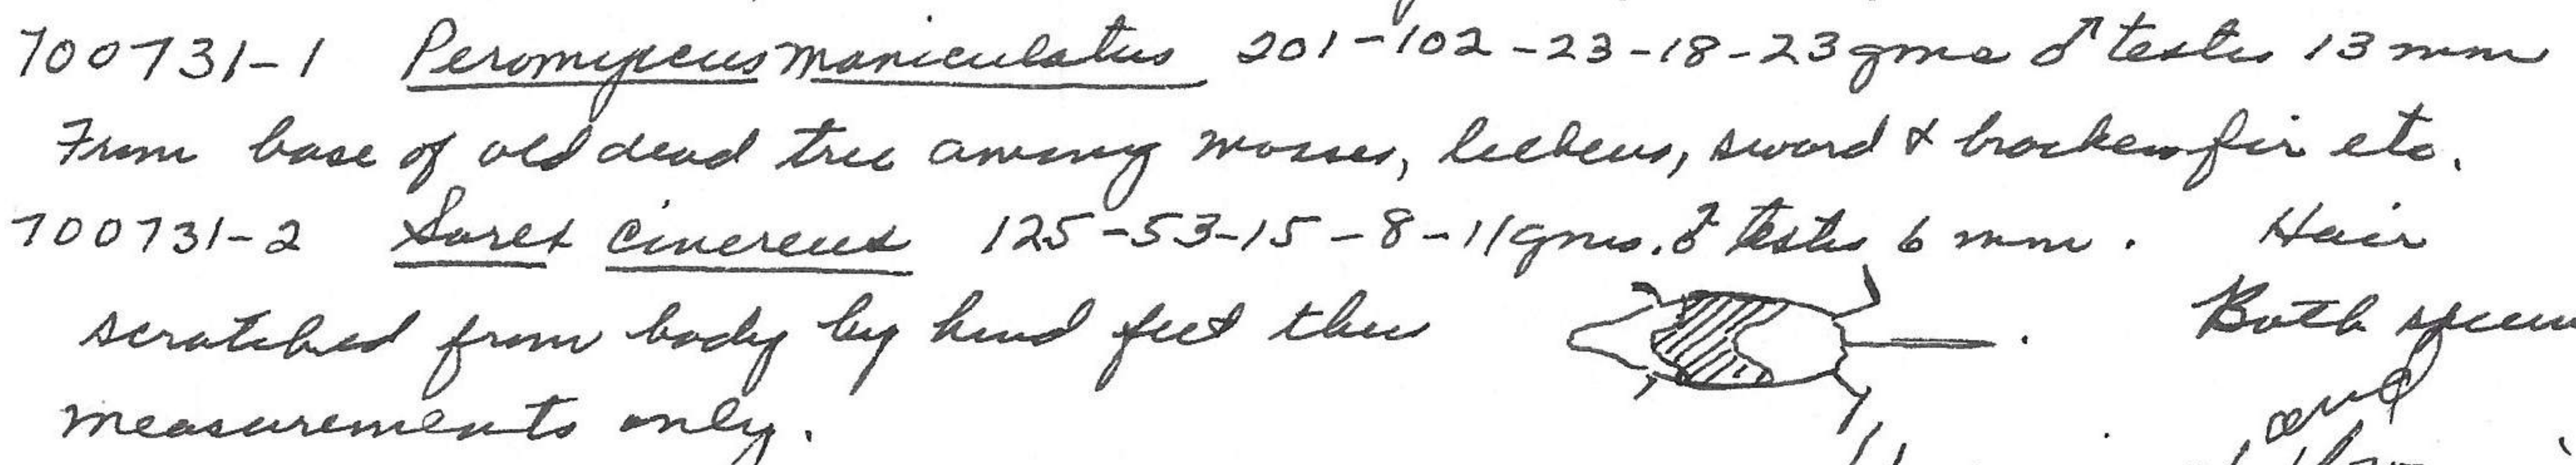 700731-1 Peromyscus maniculatus 201-102-23-18-23 gms ♂ testes 13 mm
From base of old dead tree among mosses, lichens, sword & bracken fir etc.
700731-2 Sorex cinereus 125-53-15-8-11 gms. ♂ testes 6 mm. Hair
scratched from body by hind feet thus . Both
measurements only. and